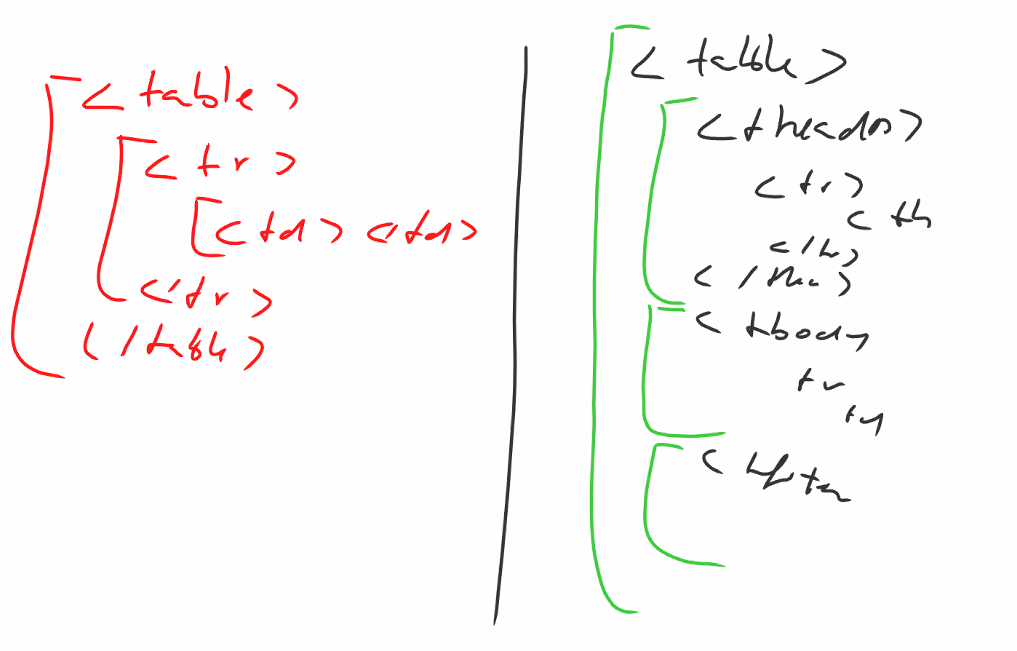 <table>
<tr>
<td> </td>
</tr>
</table>
<table>
<thead>
<tr>
<th
</tr>
</the>
<tbody
tr
td